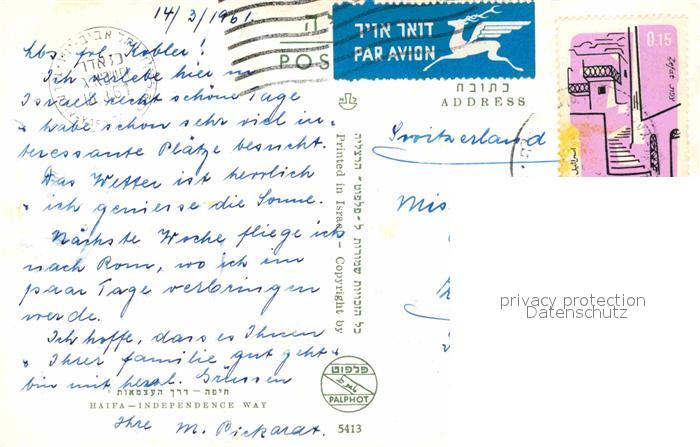 14/3/1961.
lbs. frl. Kobler!
Ich verlebe hier in
Israel recht schöne Tage
& habe schon sehr viel in-
teressante Plätze besucht.
Das Wetter ist herrlich
& ich geniesse die Sonne.
Nächste Woche fliege ich
nach Rom, wo ich ein
paar Tage verbringen
werde.
Ich hoffe, dass es Ihnen
& Ihrer Familie gut geht &
bin mit herzl. Grüssen
Ihre M. Pickardt.
חיפה – דרך העצמאות
HAIFA—INDEPENDENCE WAY
כל הזכויות שמורות ל-פלפוט - הרצליה
Printed in Israel — Copyright by
פלפוט
PALPHOT
5413
POS
דואר אויר
PAR AVION
כתובת
ADDRESS
0.15
Switzerland
Mis
privacy protection
Datenschutz